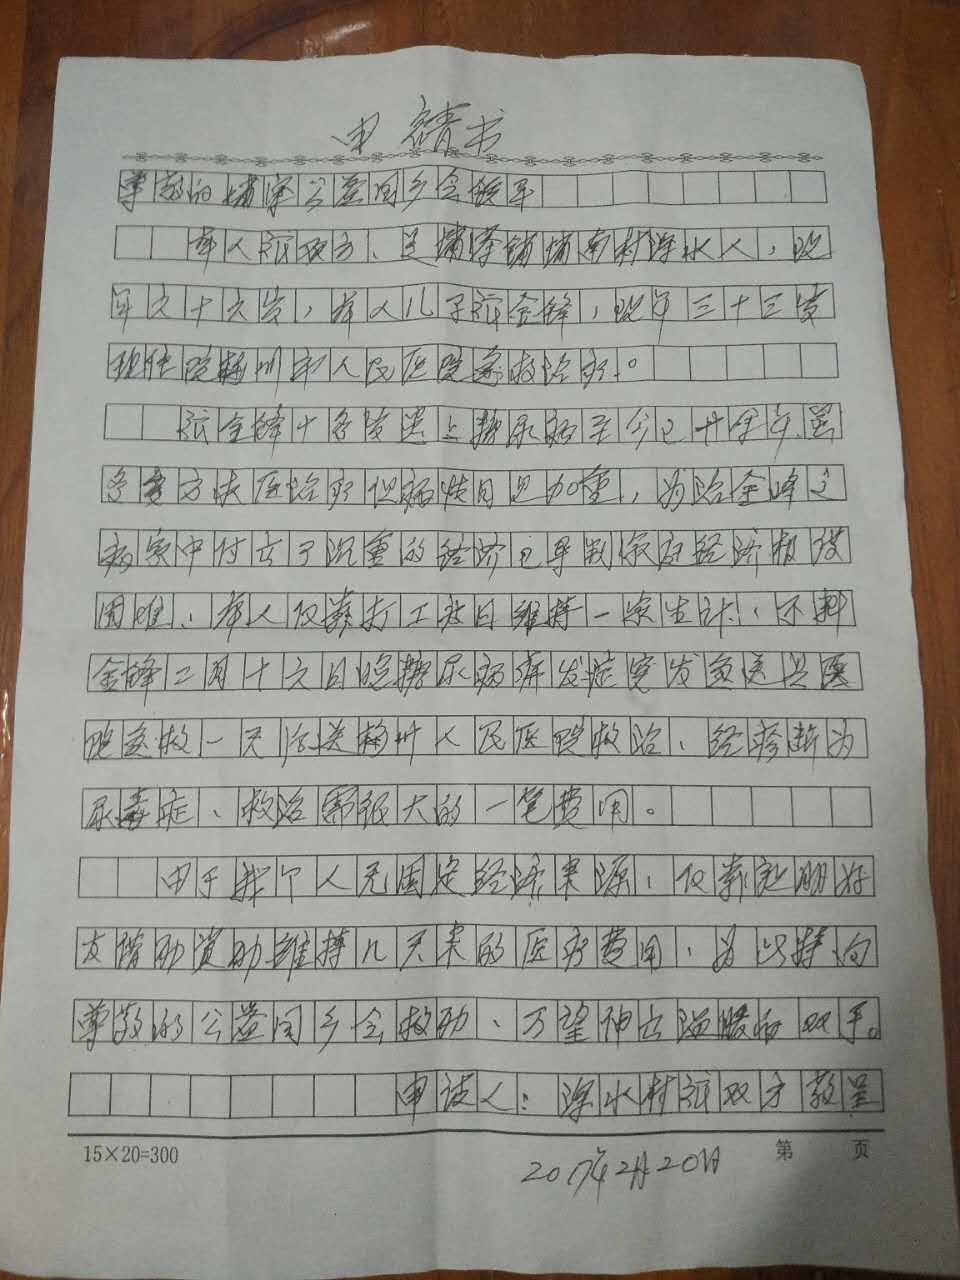 申请书
尊敬的埔寨公益同乡会领导
本人张双方、是埔寨镇埔南村深水人,现
年六十六岁,本人儿子张金锋,现年三十三岁
现住院梅州市人民医院急救治疗。
张金锋十多岁患上糖尿病至今已廿余年、虽
多方求医治疗但病情日见加重,为治金峰之
病家中付出了沉重的经济已导致家庭经济极度
困难、本人仅靠打工度日维持一家生计、不料
金锋二月十六日晚糖尿病并发症突发急送县医
院急救一天后送梅州人民医院救治、经诊断为
尿毒症、救治需很大的一笔费用。
由于我个人无固定经济来源、仅靠亲朋好
友借助资助维持几天来的医疗费用、为此特向
尊敬的公益同乡会救助、万望伸出温暖的双手。
申请人:深水村张双方敬呈
15×20=300 第 页
2017年2月20日